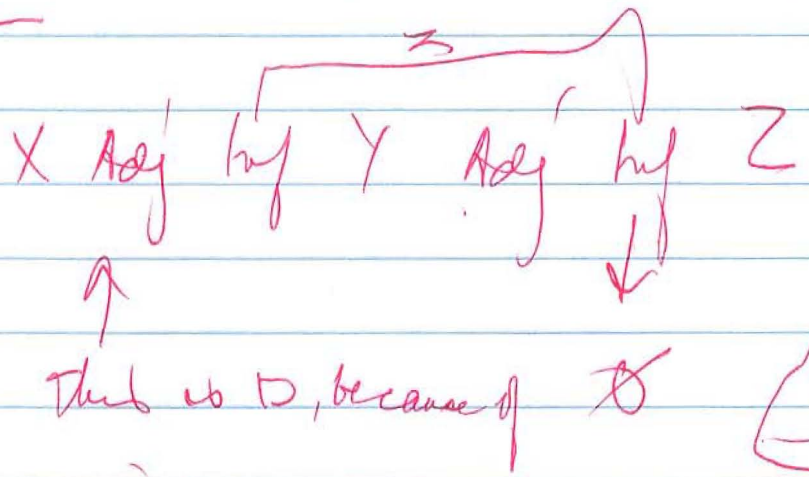 3
X Adj' Inf Y Adj' Inf Z
↑ ↓
This is D, because of Ø